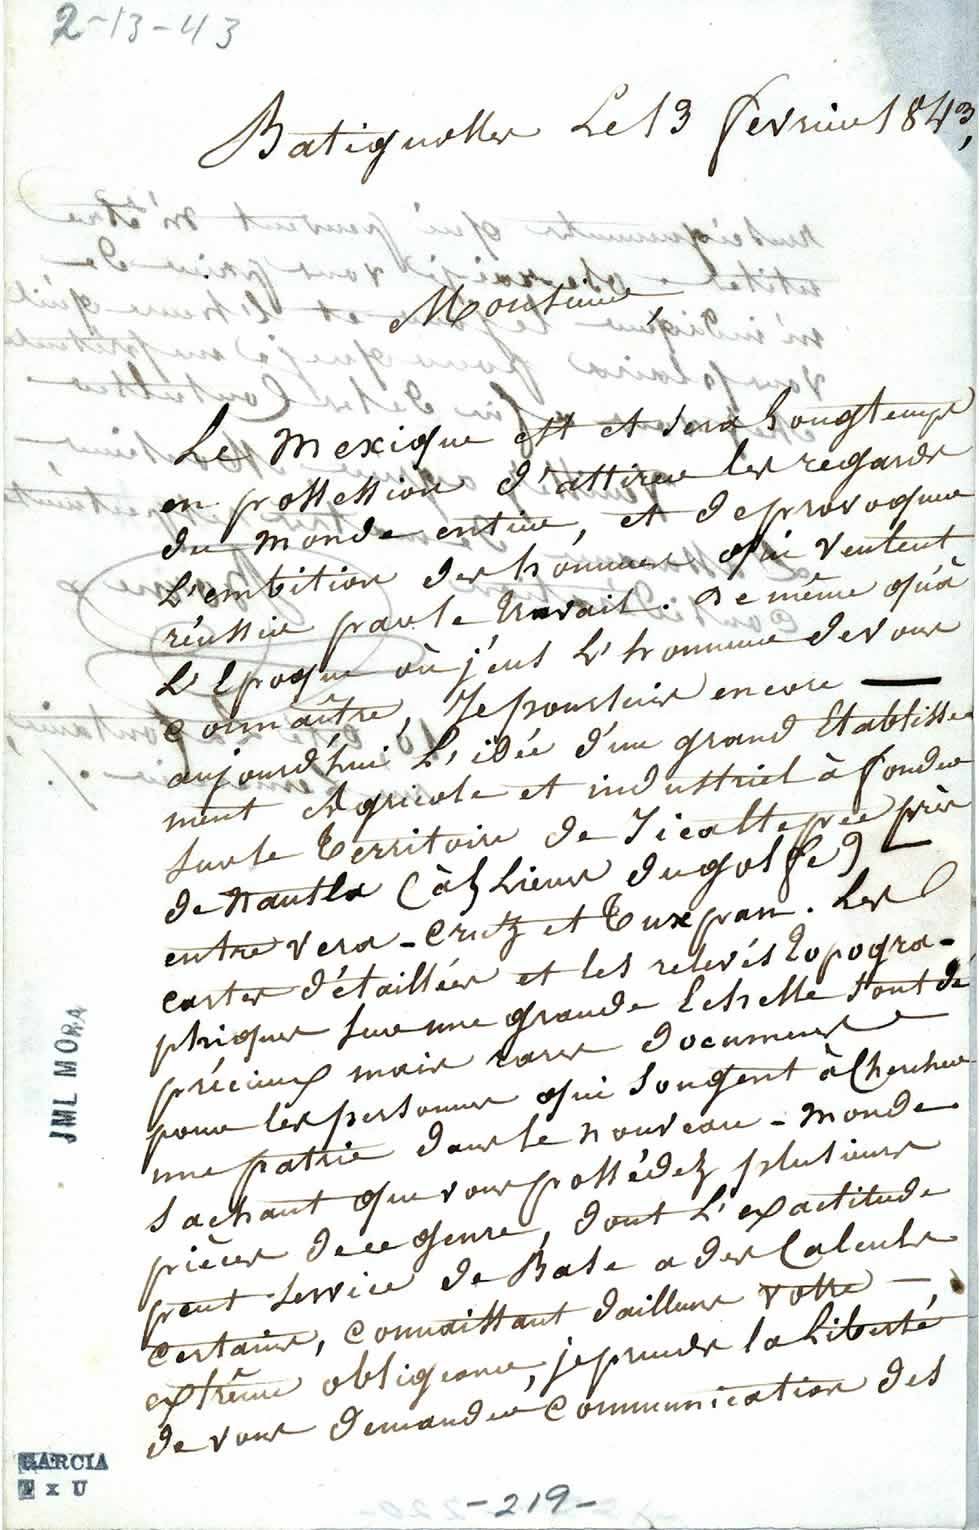 2-13-43
Batignolles Le 13 février 1843,
Monsieur,
Le Mexique est et sera Longtemps
en possession d'attirer les regards
du monde entier, et de provoquer
L'embition des hommes qui veulent
réussir par le travail. De même qu'à
L'Epoque où j'eus L'honneur de vous
connaître, Je poursuis encore —
aujourd'hui L'idée d'un grand Etablisse
ment Agricole et industriel à fonder
sur le Territoire de Jicaltepec près
de Nautla (à 5 Lieues du golfe) —
entre Vera-Cruz et Tuxpan. Les
cartes d'étaillées et les relevés Topogra-
phiques sur une grande Echelle sont de
précieux mais rares documens
pour les personnes qui songent à Chercher
une patrie dans le nouveau-monde
Sachant que vous possédez plusieurs
pièces de ce genre, dont L'exactitude
peut servir de Base a des Calculs
certains, connaissant dailleurs votre —
extrême obligeance, je prends la Liberté
de vous demander communication des
JML MORA
GARCIA
T x U
-219-